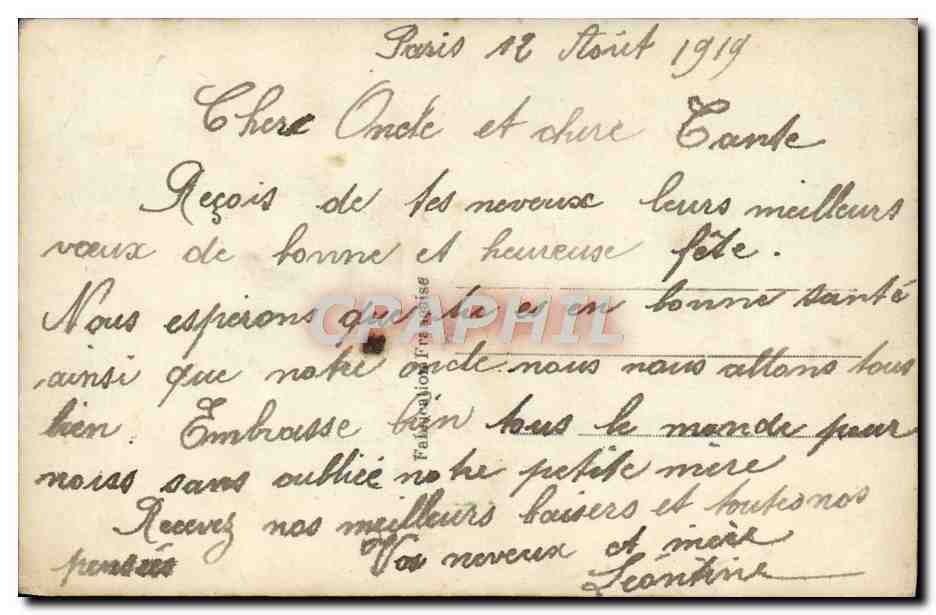 Paris 12 Août 1919
Cher Oncle et chere Tante
Reçois de tes neveux leurs meilleurs
vœux de bonne et heureuse fête.
Nous esperons que tu es en bonne santé
ainsi que notre oncle. nous nous allons tous
bien. Embrasse bien tous le monde pour
nous sans oublier notre petite mère
Recevez nos meilleurs baisers et toutes nos
pensées Vos neveux et mère
Léontine
Fabrication Française
CPAPHIL